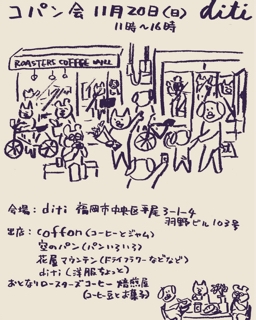 コパン会 11月20日(日) diti
11時〜16時
ROASTERS COFFEE
会場: diti 福岡市中央区平尾3-1-4
羽野ビル103号
出店: coffon(コーヒーとジャム)
空のパン(パンいろいろ)
花屋マウンテン(ドライフラワーなどなど)
diti(洋服ちょっと)
おとなりロースターズコーヒー焙煎屋
(コーヒー豆とお菓子)